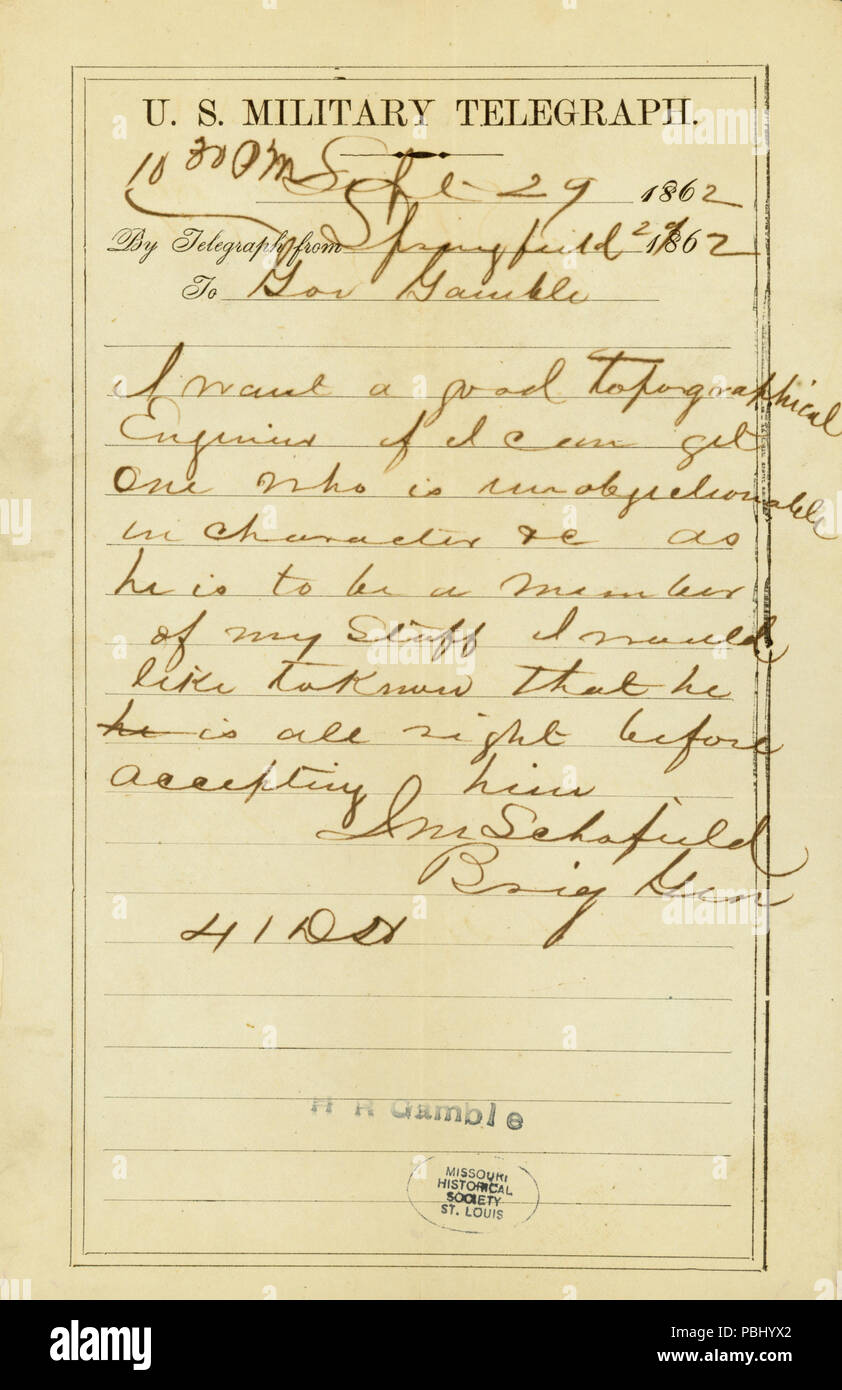 U. S. MILITARY TELEGRAPH.
10 30 PM Sept 29 1862
By Telegraph from Springfield 29 1862
To Gov Gamble
I want a good topographical
Engineer if I can get
one who is unobjectionable
in character &c as
he is to be a member
of my staff I would
like to know that he
he is all right before
accepting him
J M Schofield
Brig Gen
41 DH
H R Gamble
MISSOURI
HISTORICAL
SOCIETY
ST. LOUIS
alamy
Image ID: PBHYX2
www.alamy.com